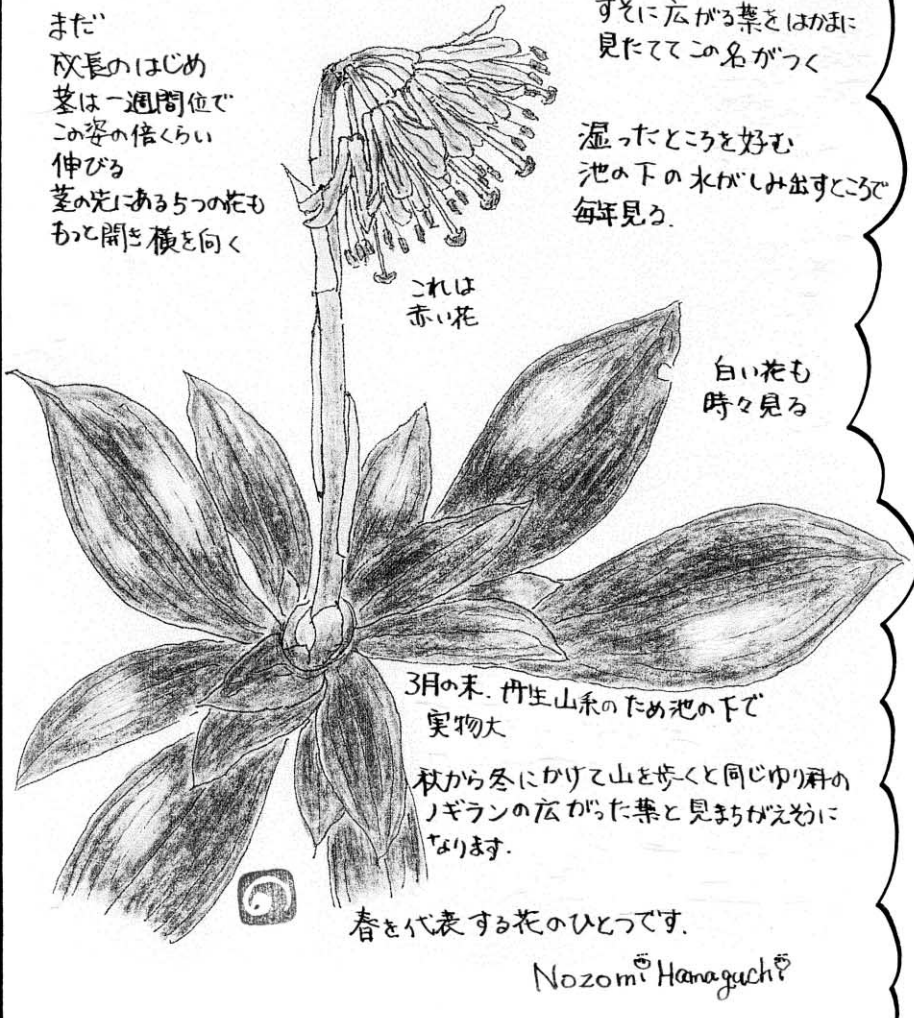 まだ
成長のはじめ
茎は一週間位で
この姿の倍くらい
伸びる
茎の先にある5つの花も
もっと開き横を向く
すそに広がる葉をはかまに
見たててこの名がつく
湿ったところを好む
池の下の水がしみ出すところで
毎年見る.
これは
赤い花
白い花も
時々見る
3月の末.丹生山系のため池の下で
実物大
秋から冬にかけて山を歩くと同じゆり科の
ノギランの広がった葉と見まちがえそうに
なります.
春を代表する花のひとつです.
Nozomi Hamaguchi